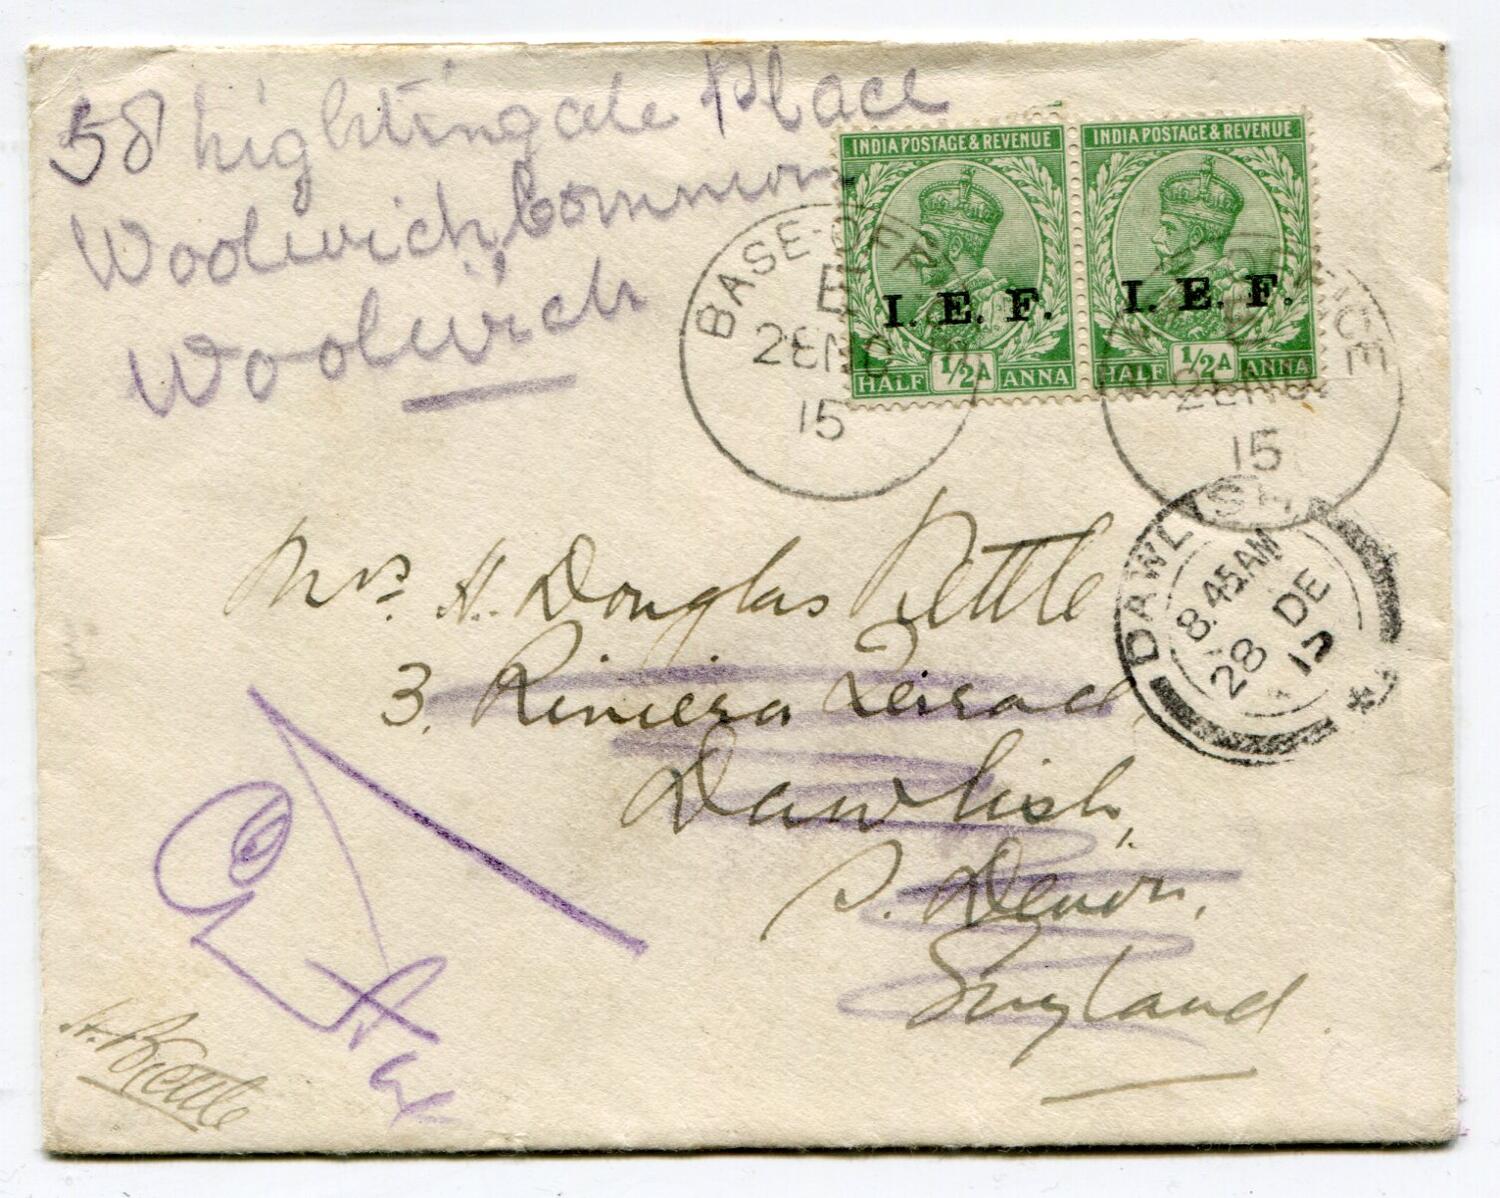 58 Nightingale Place
Woolwich Common
Woolwich
INDIA POSTAGE & REVENUE
I. E. F.
HALF 1/2A ANNA
INDIA POSTAGE & REVENUE
I. E. F.
HALF 1/2A ANNA
BASE-OFFICE
B
28 NO
15
OFFICE
B
28 NO
15
DAWLISH
8.45 AM
28 DE
15
Mrs. H. Douglas Kettle
3. Riviera Terrace,
Dawlish,
S. Devon,
England.
H. Kettle